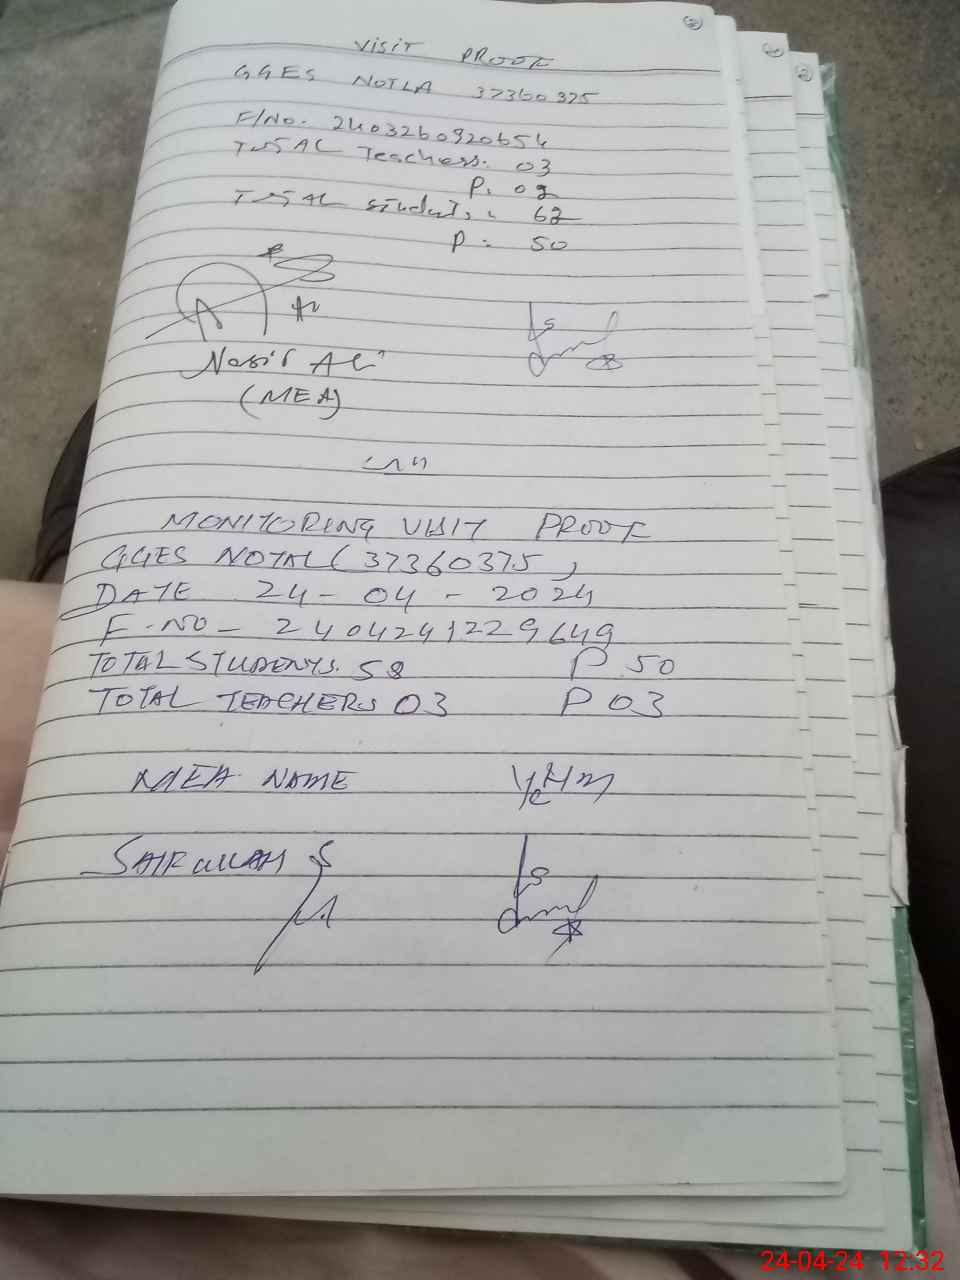 VISIT PROOF
GGES NOTLA 37360375
F/No. 2403260920654
TOTAL Teachers. 03
P. 02
TOTAL students. 62
P. 50
Nasir Ali
(MEA)
MONITORING VISIT PROOF
GGES NOTAL (37360375)
DATE 24-04-2024
F.NO- 2404241229649
TOTAL STUDENTS. 58 P 50
TOTAL TEACHERS 03 P 03
MEA NAME
SAIFULLAH
24-04-24 12:32